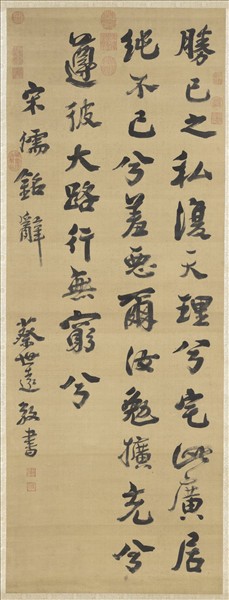 勝己之私復天理兮宅此廣居
純不已兮羞惡爾汝勉擴充兮
遵彼大路行無窮兮
宋儒銘辭 蔡世遠敬書